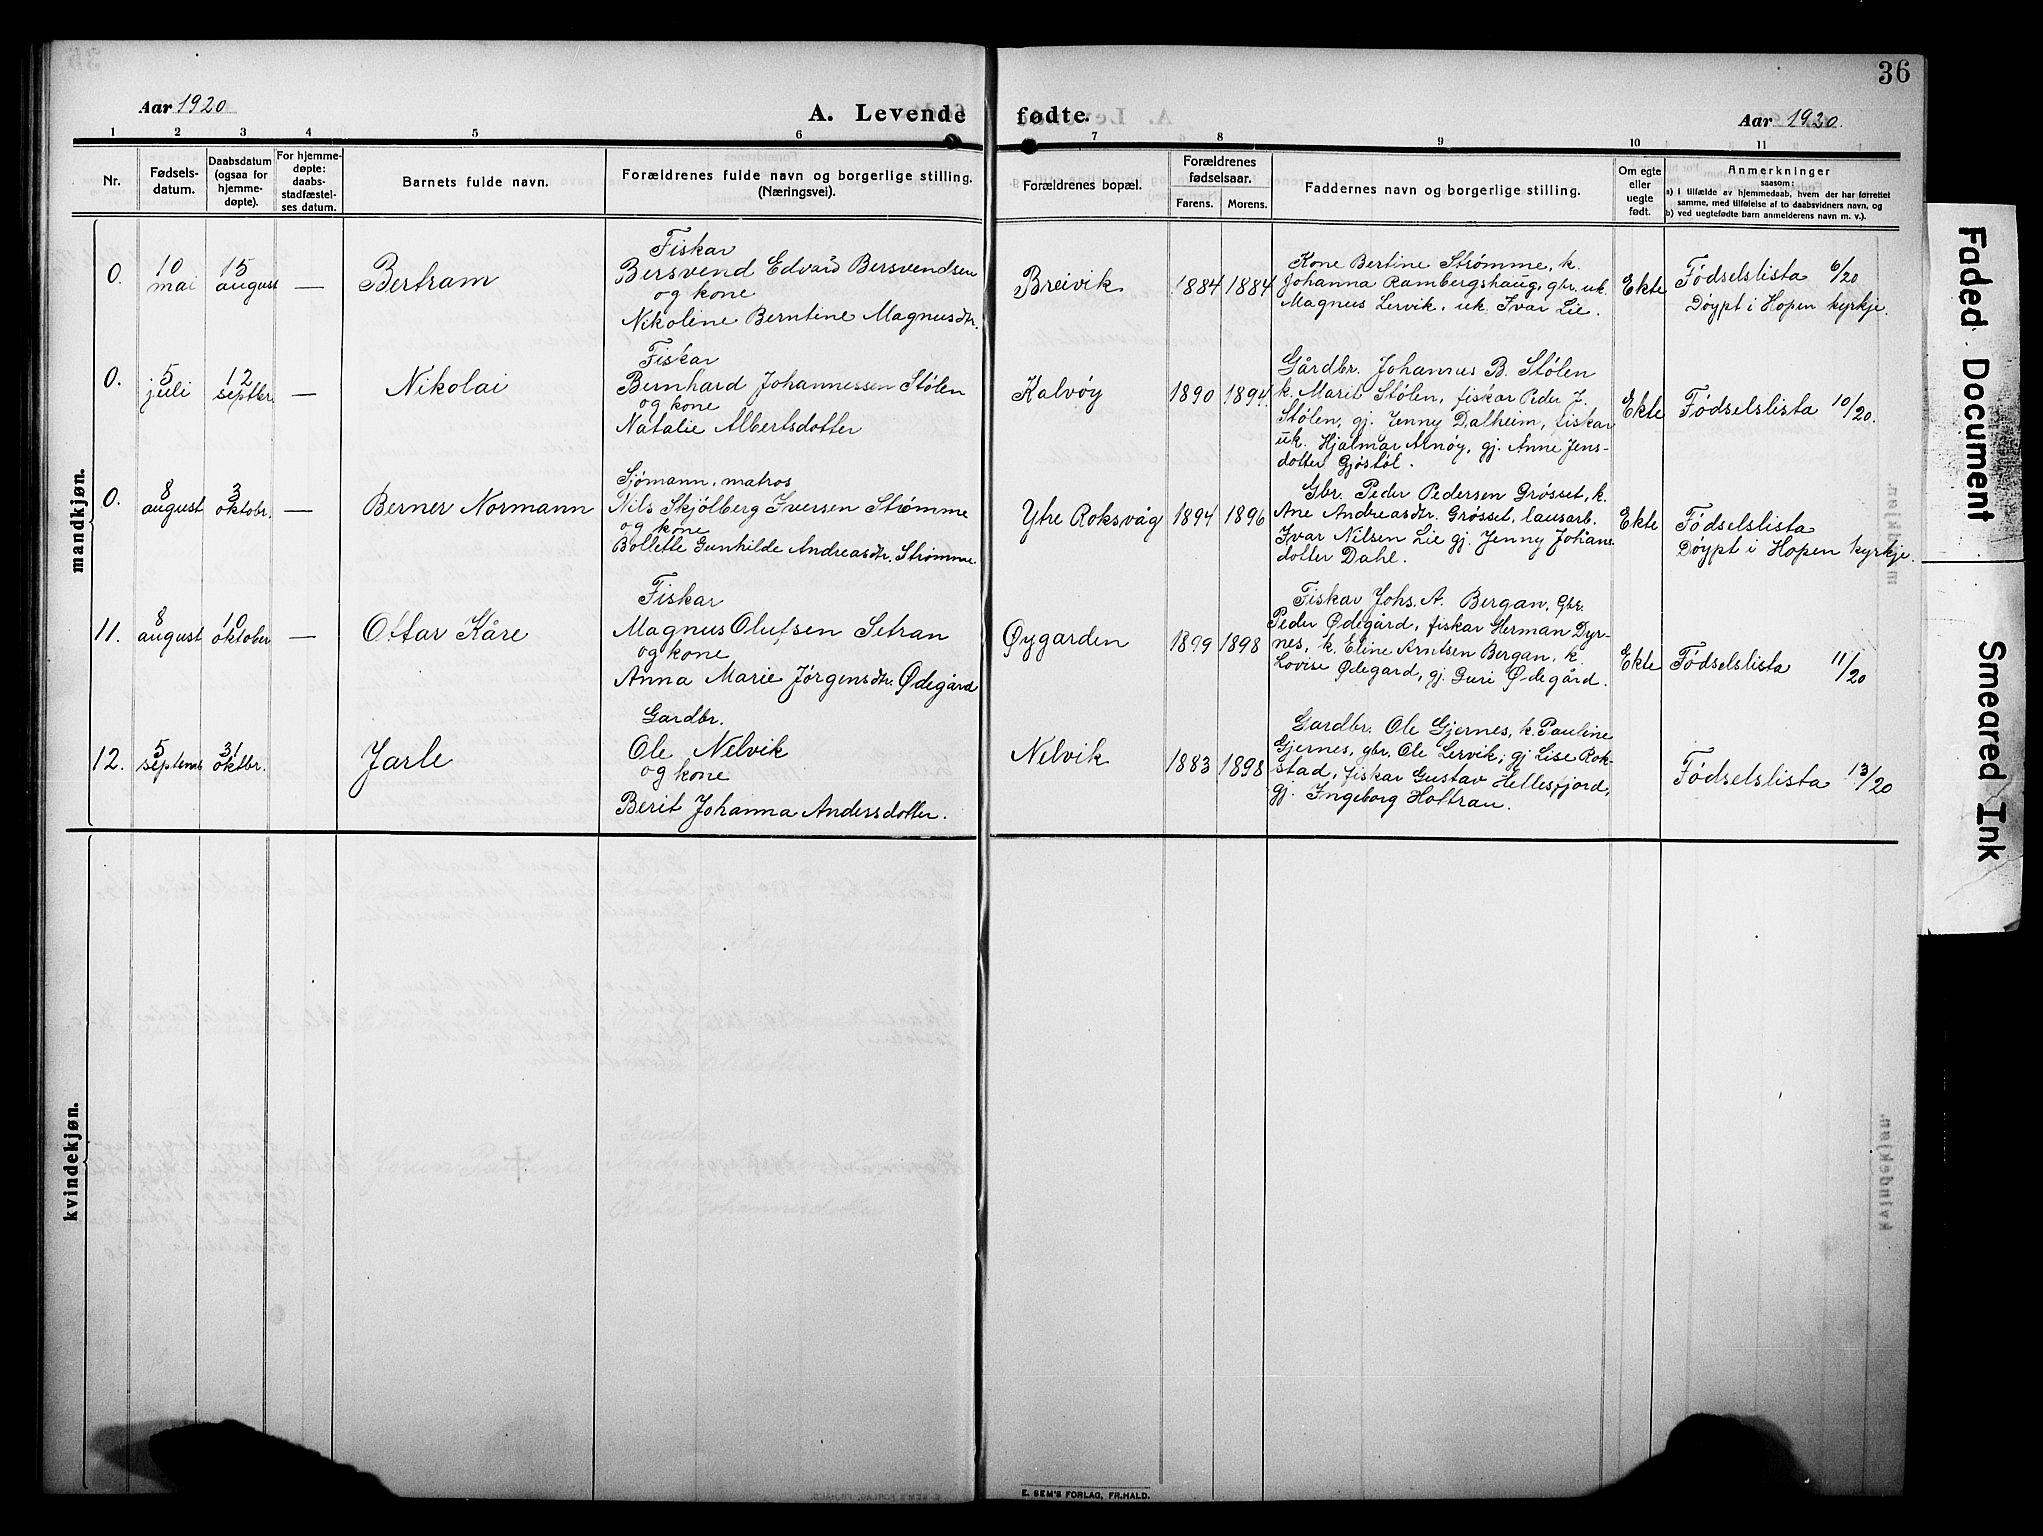 36
Aar 1920
A. Levende fødte.
Aar 1920.
1 2 3 4 5 6 7 8 9 10 11
Nr.
Fødsels-
datum.
Daabsdatum
(ogsaa for
hjemme-
døpte).
For hjemme-
døpte:
daabs-
stadfæstel-
ses datum.
Barnets fulde navn.
Forældrenes fulde navn og borgerlige stilling.
(Næringsvei).
Forældrenes bopæl.
Forældrenes
fødselsaar.
Farens. Morens.
Faddernes navn og borgerlige stilling.
Om egte
eller
uegte
født.
Anmerkninger
saasom:
a) i tilfælde av hjemmedaab, hvem der har forrettet
samme, med tilføielse af to daabsvidners navn, og
b) ved uegtefødte barn anmelderens navn m. v.).
mandkjøn.
0.
10
mai
15
august
—
Bertram
Fiskar
Bersvend Edvard Bersvendsen
og kone
Nikoline Berntine Magnusdtr.
Breivik
1884 1884
Kone Bertine Strømme, k.
Johanna Rambergshaug, gbr. uk.
Magnus Lervik, uk. Ivar Lie.
Ekte
Fødselslista 6/20
Døypt i Hopen kyrkje.
0.
5
juli
12
septbr.
—
Nikolai
Fiskar
Bernhard Johannessen Stølen
og kone
Natalie Albertsdotter
Kalvøy
1890 1894
Gårdbr. Johannus B. Stølen
k. Marit Stølen, fiskar Peder J.
Stølen, gj. Jenny Dalheim, fiskar
uk. Hjalmar Arnøy, gj. Anne Jens-
dotter Gjøstøl.
Ekte
Fødselslista 10/20.
0.
8
august
3
oktobr.
—
Berner Normann
Sjømann, matros
Nils Skjølberg Iversen Strømme
og kone
Bollette Gunhilde Andreasdtr. Strømme
Ytre Roksvåg
1894 1896
Gbr. Peder Pedersen Grøsset, k.
Ane Andreasdtr. Grøsset, lausarb.
Ivar Nilsen Lie gj. Jenny Johans-
dotter Dahl.
Ekte
Fødselslista
Døypt i Hopen kyrkje.
11.
8
august
10
oktober
—
Ottar Kåre
Fiskar
Magnus Olufsen Setran
og kone
Anna Marie Jørgensdtr. Ødegård
Øygarden
1899 1898
Fiskar Johs. A. Bergan, Gbr.
Peder Ødegård, fiskar Herman Dyr-
nes, k. Eline Arntsen Bergan, k.
Lovise Ødegard, gj. Guri Ødegård.
Ekte
Fødselslista 11/20
12.
5
septenb
31
oktbr.
Jarle
Gardbr.
Ole Nelvik
og kone
Berit Johanna Andersdotter.
Nelvik
1883 1898
Gardbr. Ole Gjernes, k. Pauline
Gjernes, gbr. Ole Lervik; gj Lise Rok-
stad, fiskar Gustav Hellesfjord,
gj. Ingeborg Holtran.
Fødselslista 13/20
kvindekjøn.
E. SEM'S FORLAG, FR.HALD.
Faded Document
Smeared Ink